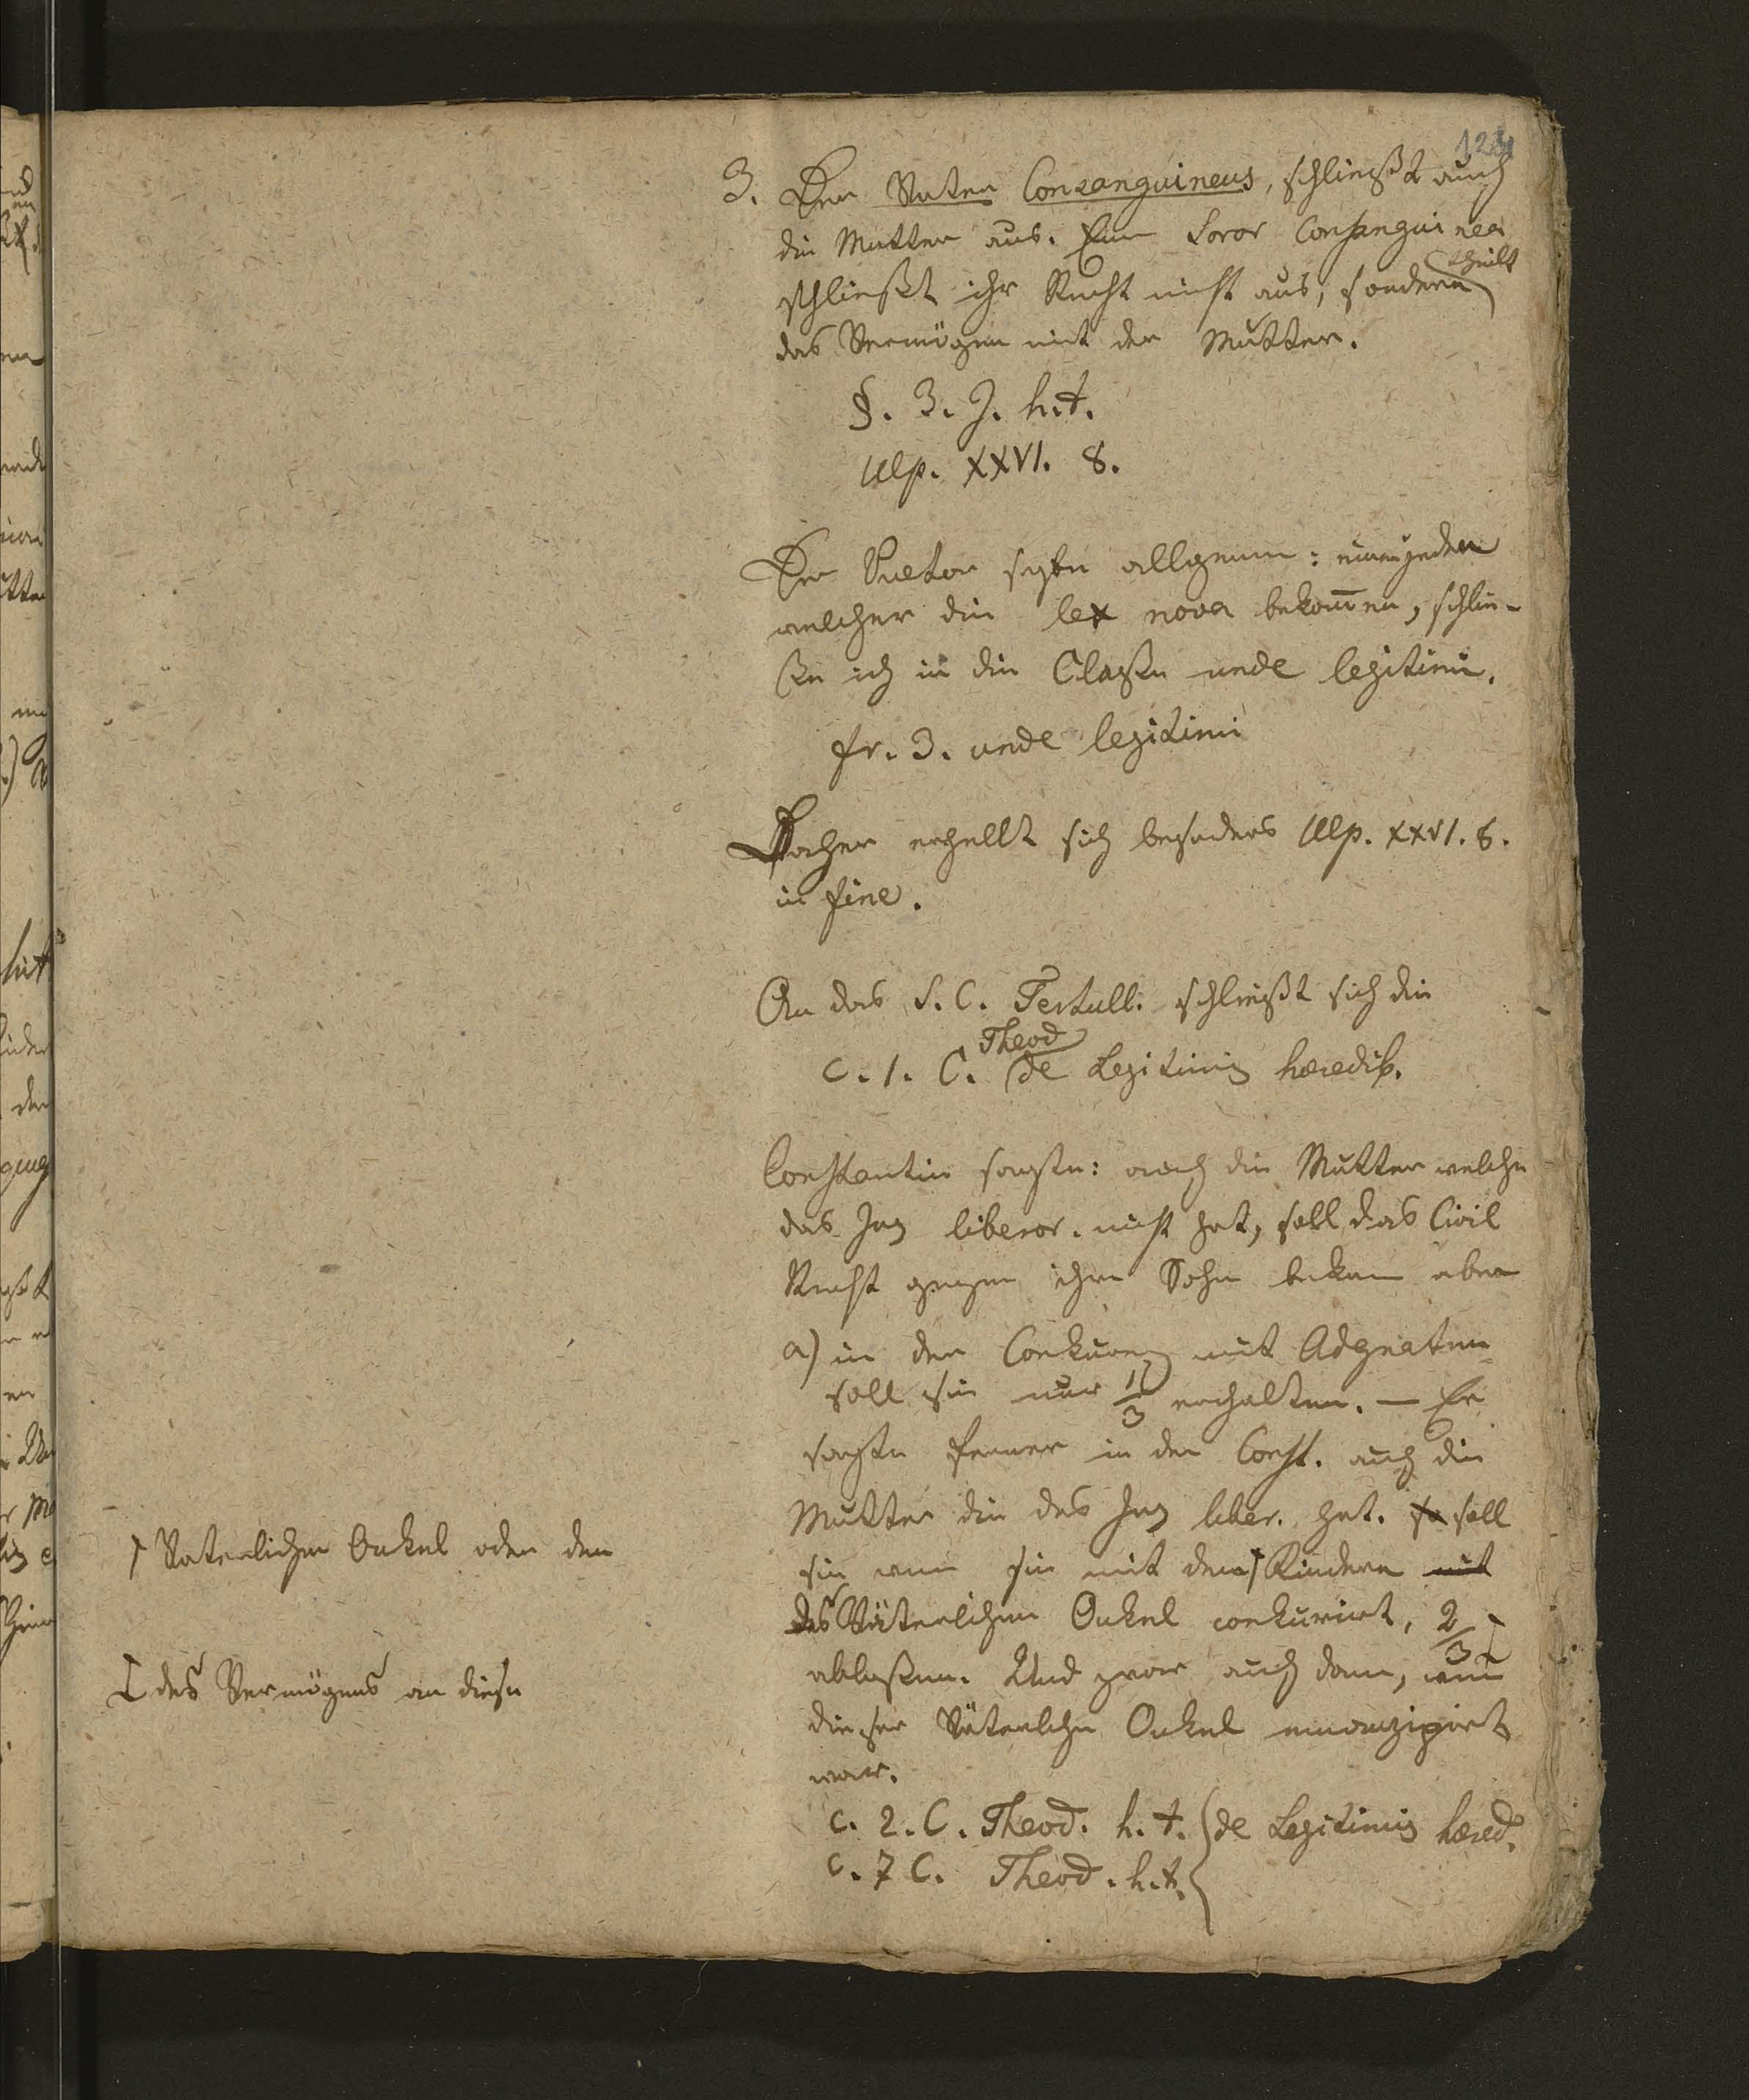 124
3. Der Vater Consanguineus, schließt auch
die Mutter aus. Eine Soror Consanguinea
schließt ihr Recht nicht aus, sondern theilt
das Vermögen mit der Mutter.
§. 3. J. h. t.
Ulp. XXVI. 8.
Der Praetor sagte allgemein: einen jeden
welcher die lex nova bekommen, schlie-
ße ich in die Claße unde legitimi.
fr. 3. unde legitimi
Daher erhellt sich besonders Ulp. XXVI. 8.
in fine.
An das S. C. Tertull. schließt sich die
c. 1. C. Theod de Legitimis heredib.
Constantin sagte: auch die Mutter welche
das Jus liberor. nicht hat, soll das Civil
Recht gegen ihren Sohn bekom aber
a) in der Conkurenz mit Adgnaten
soll sie nur 1/3 erhalten. — Er
sagte ferner in der Const. auch die
Mutter die das Jus liber. hat. so soll
sie wenn sie mit dem Kindern mit
des Väterlichen Onkel conkurirt, 2/3
ablaßen. Und zwar auch dann, wenn
dieser Väterliche Onkel emanzipirt
war.
c. 2. C. Theod. h. t. de Legitimis hered.
c. 7 C. Theod. h. t.
Vaterlichen Onkel oder den
des Vermögens an diese